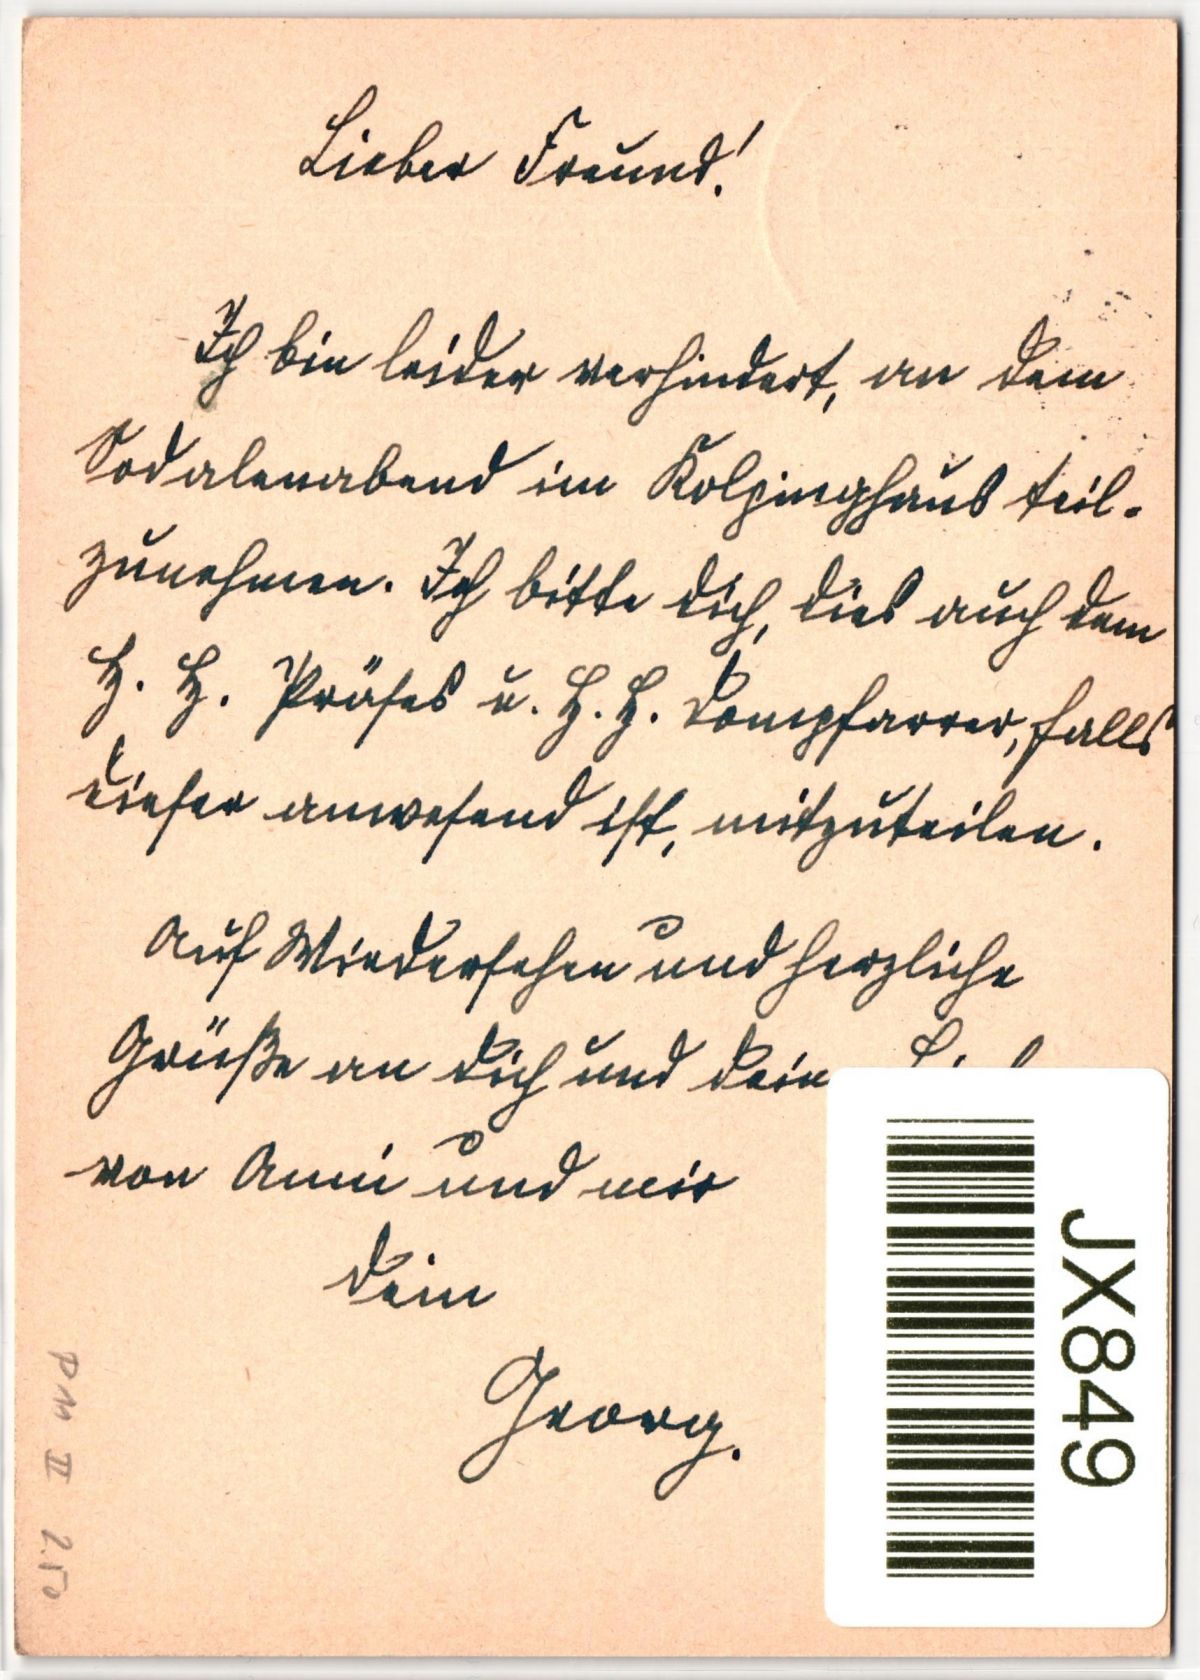 Lieber Freund!
Ich bin leider verhindert, an dem
Sodalenabend im Kolpinghaus teil-
zunehmen. Ich bitte dich, dies auch dem
H. H. Präses u. H. H. Dompfarrer, falls
dieser anwesend ist, mitzuteilen.
Auf Wiedersehen und herzliche
Grüße an Dich und
von Anni und mir
Dein
Georg.
JX849
PM II 2.50